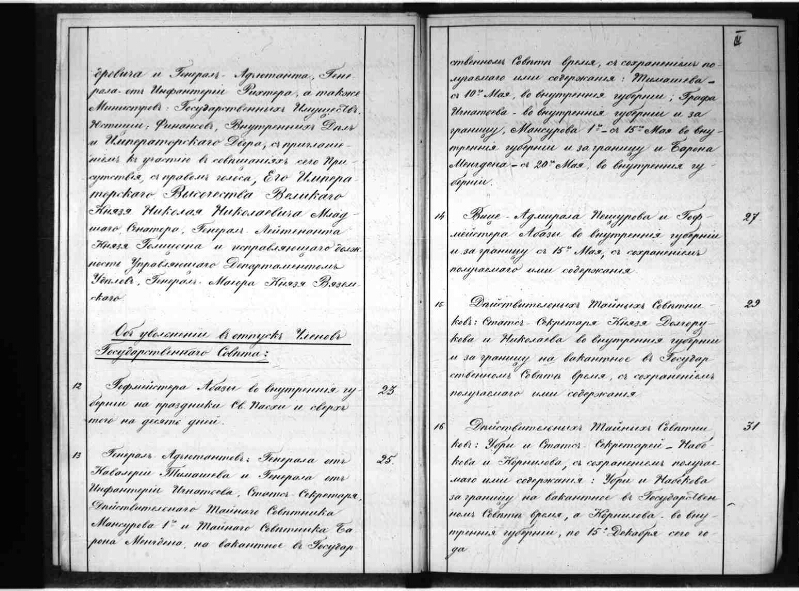 дровича и Генералъ-Адъютанта, Гене-
рала-отъ-Инфантеріи Рихтера, а также
Министровъ: Государственныхъ Имуществъ,
Юстиціи, Финансовъ, Внутреннихъ Делъ
и Императорскаго Двора, съ приглаше-
ніемъ къ участію въ совещаніяхъ сего При-
сутствія, съ правомъ голоса, Его Импера-
торскаго Высочества Великаго
Князя Николая Николаевича Млад-
шаго, Сенатора, Генералъ-Лейтенанта
Князя Голицына и исправляющаго долж-
ность Управляющаго Департаментомъ
Уделовъ, Генералъ-Маіора Князя Вязем-
скаго
Объ увольненіи въ отпускъ Членовъ
Государственнаго Совета:
12 Гофмейстера Абазы во внутреннія гу-
берніи на праздники Св. Пасхи и сверхъ
того на десять дней. 23
13 Генералъ-Адъютантовъ: Генерала отъ
Кавалеріи Тимашева и Генерала отъ
Инфантеріи Игнатьева, Статсъ-Секретаря,
Действительнаго Тайнаго Советника
Мансурова 1го и Тайнаго Советника Ба-
рона Менгдена, на вакантное въ Государ 25.
III
ственномъ Совете время, съ сохраненіемъ по-
лучаемаго ими содержанія: Тимашева-
съ 10го Мая, во внутреннія губерніи; Графа
Игнатьева-во внутреннія губерніи и за
границу, Мансурова 1го-съ 15го Мая во вну-
треннія губерніи и за границу и Барона
Менгдена-съ 20го Мая, во внутреннія гу-
берніи.
14 Вице-Адмирала Пещурова и Гоф-
мейстера Абазы во внутреннія губерніи
и за границу съ 15го Мая, съ сохраненіемъ
получаемаго ими содержанія 27
15 Действительныхъ Тайныхъ Советни-
ковъ: Статсъ-Секретаря Князя Долгору-
кова и Николаева во внутреннія губерніи
и за границу на вакантное въ Государ
ственномъ Совете время, съ сохраненіемъ
получаемаго ими содержанія 29
16 Действительныхъ Тайныхъ Советни-
ковъ: Убри и Статсъ-Секретарей-Набо-
кова и Корнилова, съ сохраненіемъ получае
маго ими содержанія: Убри и Набокова
за границу на вакантное въ Государствен
номъ Совете время, а Корнилова-во вну-
треннія губерніи, по 15е Декабря сего го-
да 31